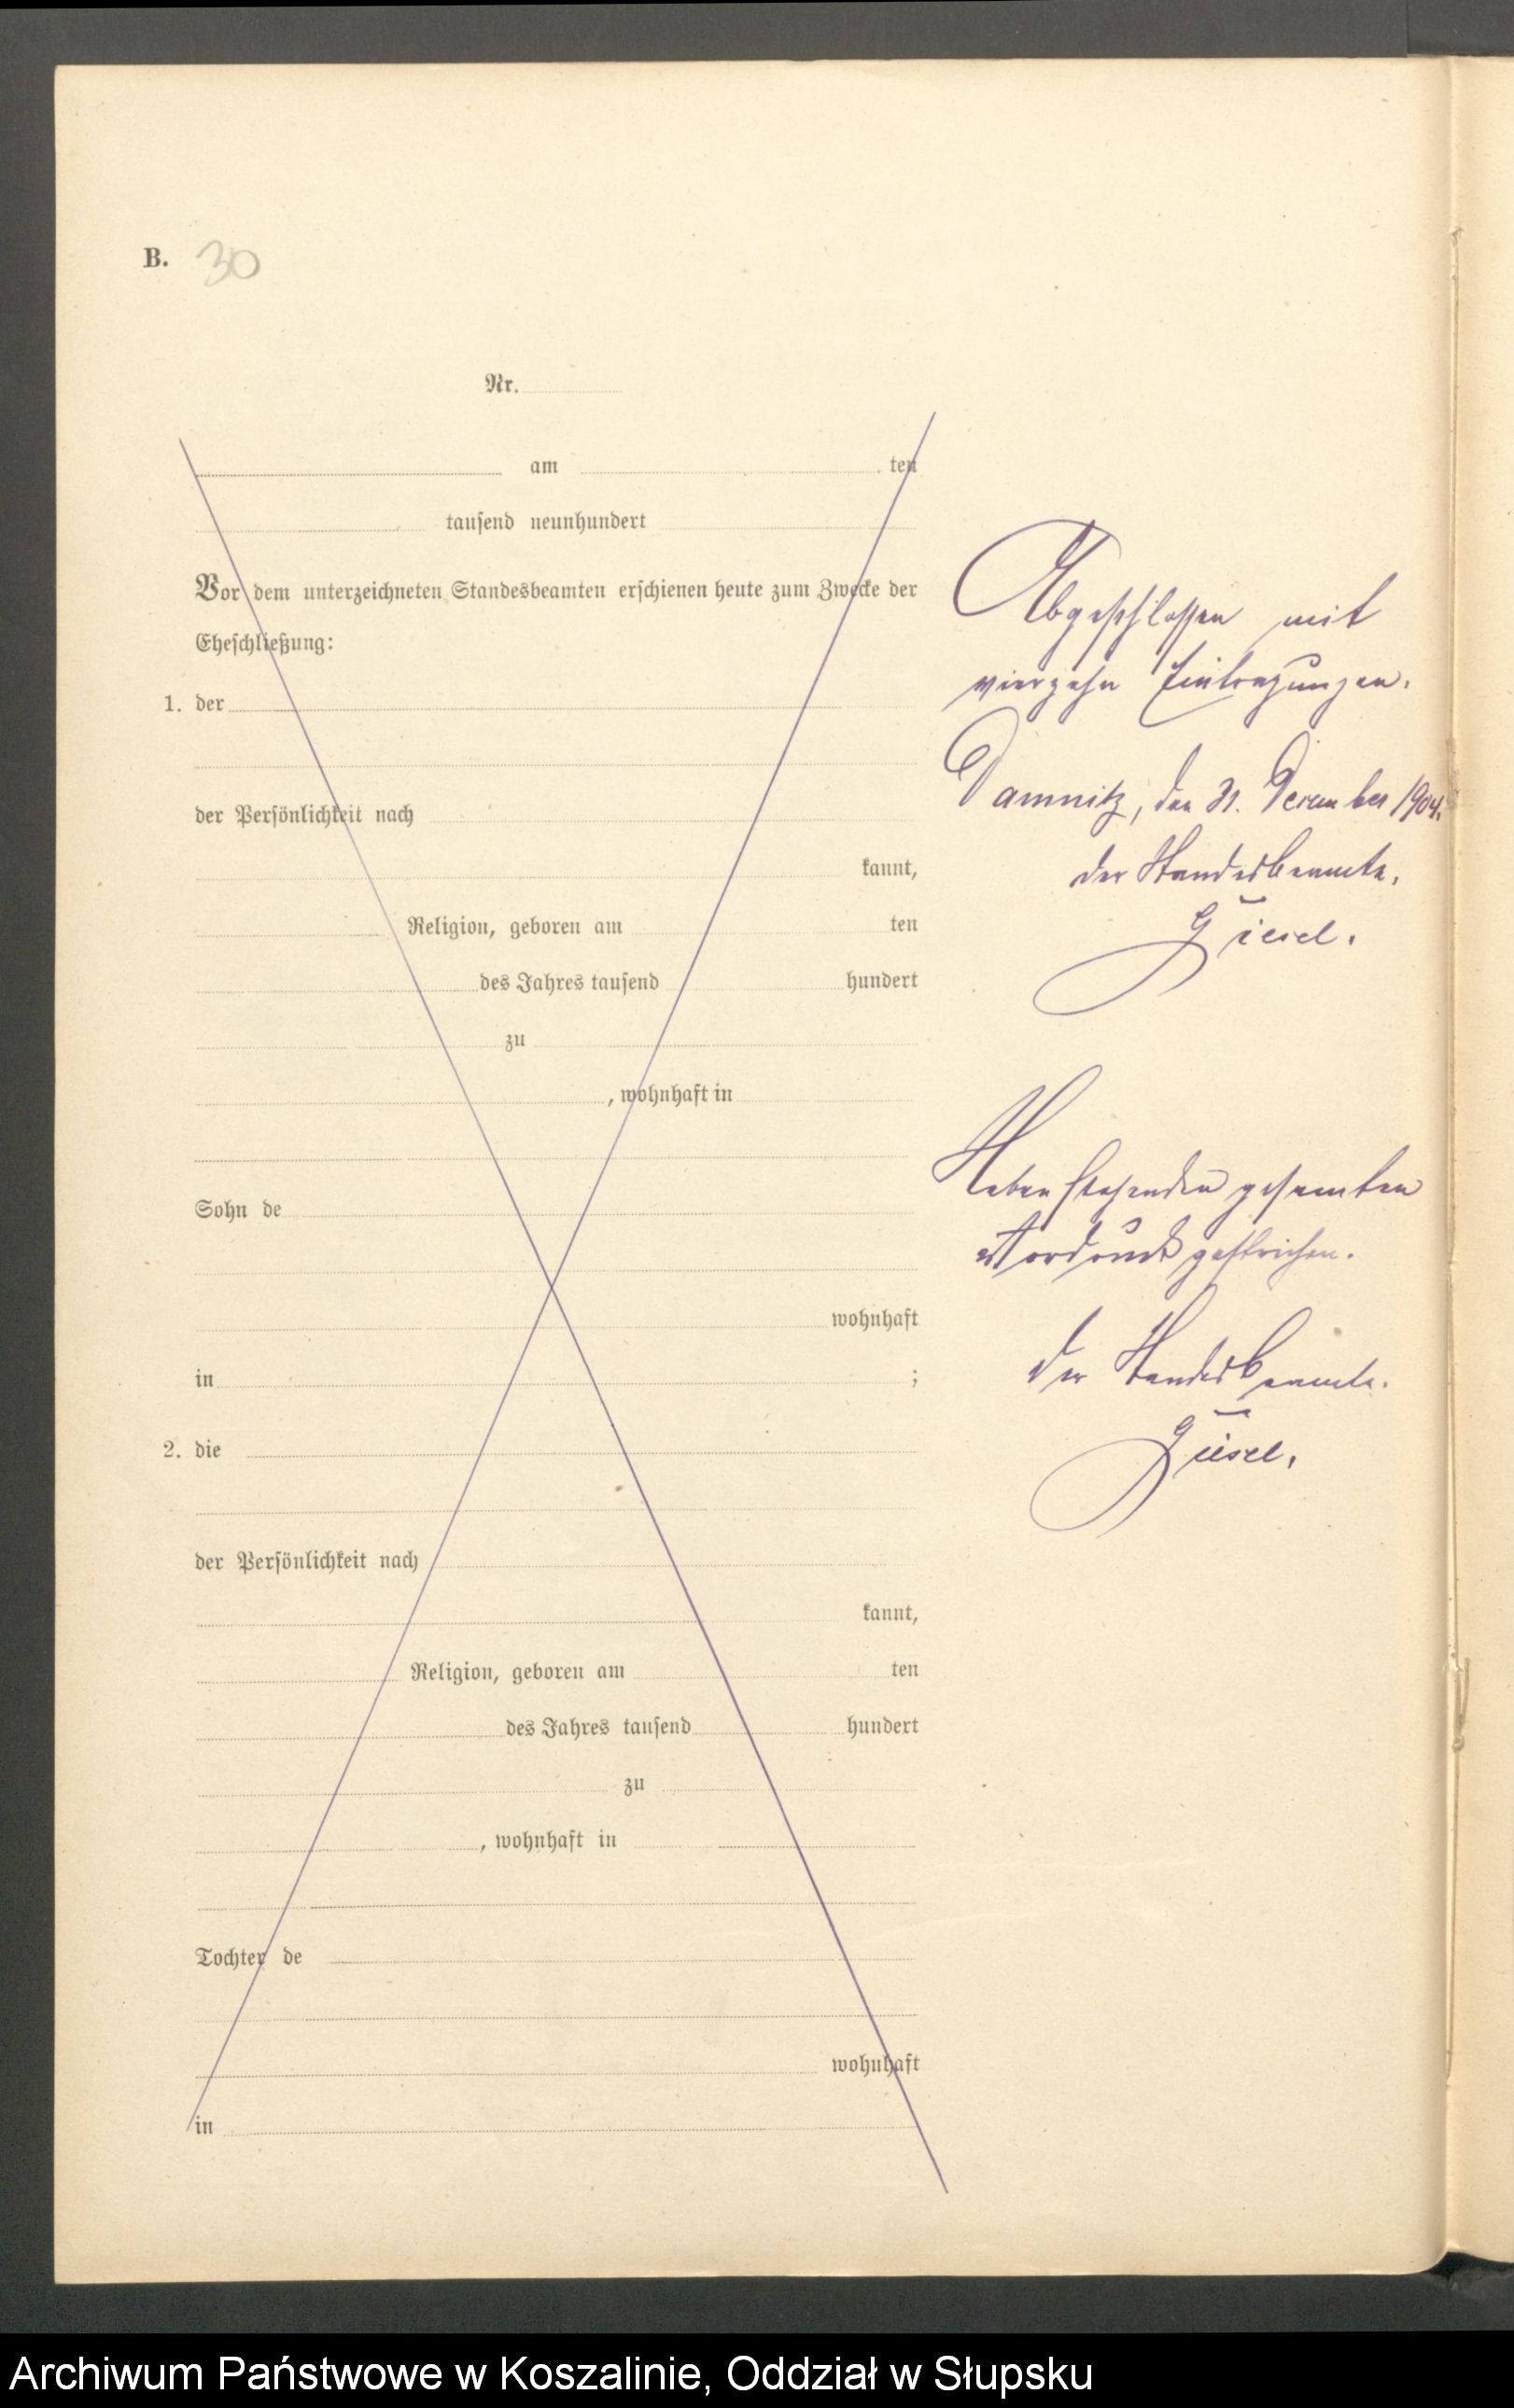 B. 30
Nr.
am ten
tausend neunhundert
Vor dem unterzeichneten Standesbeamten erschienen heute zum Zwecke der
Eheschließung:
1. der
der Persönlichkeit nach
kannt,
Religion, geboren am ten
des Jahres tausend hundert
zu
, wohnhaft in
Sohn de
wohnhaft
in ;
2. die
der Persönlichkeit nach
kannt,
Religion, geboren am ten
des Jahres tausend hundert
zu
, wohnhaft in
Tochter de
wohnhaft
in
Abgeschlossen mit
vierzehn Eintragungen.
Damnitz, den 31. Dezember 1904.
Der Standesbeamte.
Nebenstehenden gesamten
Vordruck gestrichen.
Der Standesbeamte.
Archiwum Państwowe w Koszalinie, Oddział w Słupsku